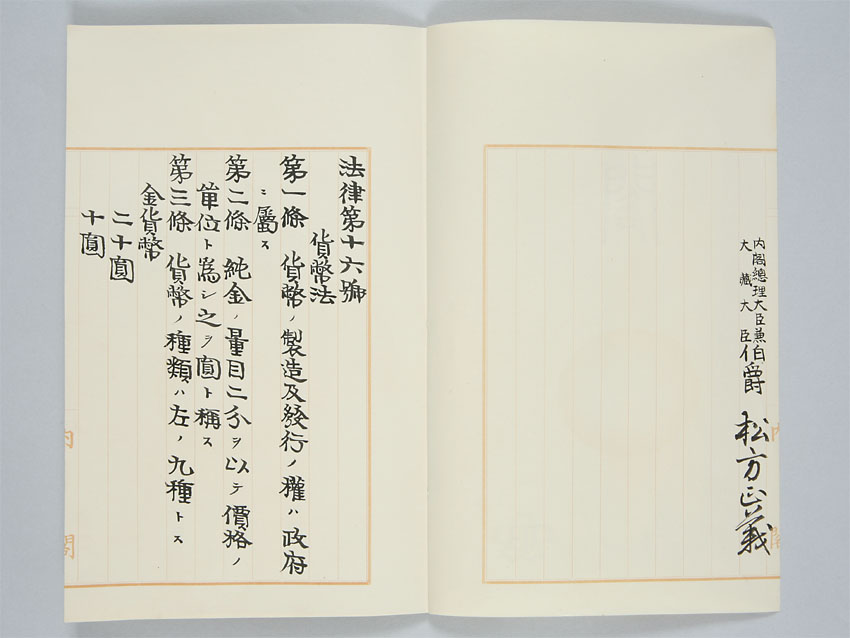 内閣總理大臣兼
大藏大臣
伯爵 松方正義
法律第十六號
貨幣法
第一條 貨幣ノ製造及發行ノ權ハ政府
ニ屬ス
第二條 純金ノ量目二分ヲ以テ價格ノ
單位ト為シ之ヲ圓ト稱ス
第三條 貨幣ノ種類ハ左ノ九種トス
金貨幣
二十圓
十圓
内閣